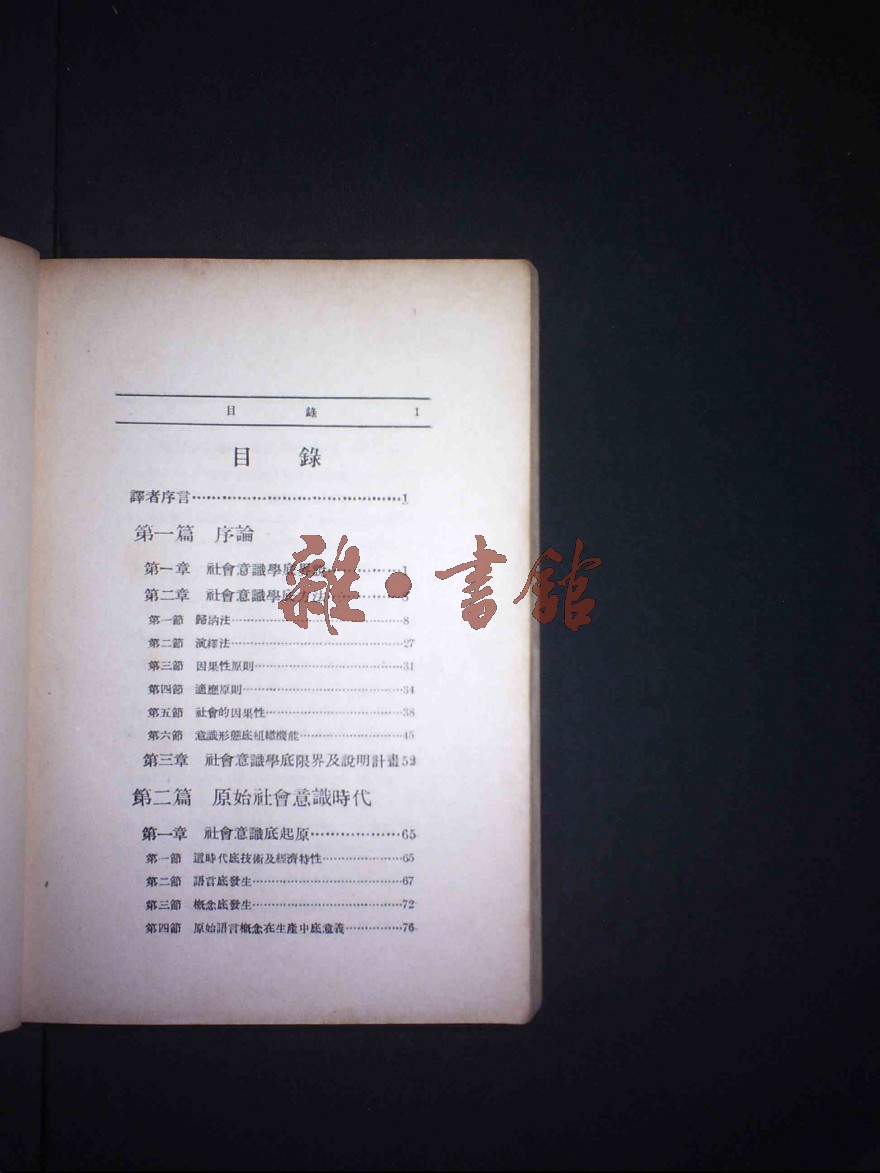 目 錄 1
目 錄
譯者序言………………………………………1
第一篇 序論
第一章 社會意識學底界說……………1
第二章 社會意識學底方法……………5
第一節 歸納法………………………………8
第二節 演繹法………………………………27
第三節 因果性原則…………………………31
第四節 適應原則……………………………34
第五節 社會的因果性………………………38
第六節 意識形態底組織機能………………45
第三章 社會意識學底限界及說明計畫52
第二篇 原始社會意識時代
第一章 社會意識底起原………………65
第一節 這時代底技術及經濟特性…………65
第二節 語言底發生…………………………67
第三節 概念底發生…………………………72
第四節 原始語言概念在生產中底意義……76
雜·書館